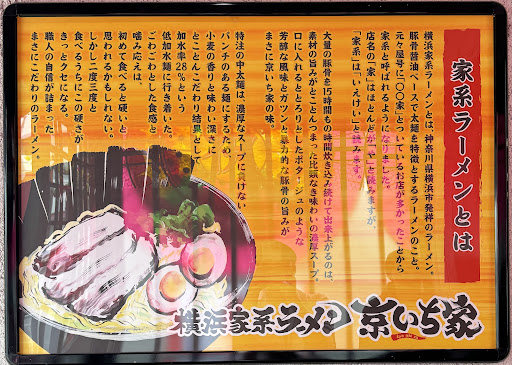 家系ラーメンとは
横浜家系ラーメンとは、神奈川県横浜市発祥のラーメン。
豚骨醤油ベースで太麺を特徴とするラーメンのこと。
元々屋号に「○○家」とついているお店が多かったことから
家系と呼ばれるようになりました。
店名の「家」はほとんどが「や」と読みますが、
「家系」は「いえけい」と読みます。
大量の豚骨を15時間もの時間炊き込み続けて出来上がるのは、
素材の旨みがとことんつまった比類なき味わいの濃厚スープ。
口に入れるととろりとしたポタージュのような
芳醇な風味とガツンと暴力的な豚骨の旨みが
まさに京いち家の味。
特注の中太麺は、濃厚なスープに負けない
パンチのある麺にするため
小麦の香りと味わい深さに
とことんこだわり結果として
加水率28%という
低加水麺に行き着いた。
ごわごわとした食感と
噛み応え。
初めて食べると硬いと、
思われるかもしれない。
しかし二度三度と
食べるうちにこの硬さが
きっとクセになる。
職人の自信が詰まった、
まさにこだわりのラーメン。
横浜家系ラーメン 京いち家